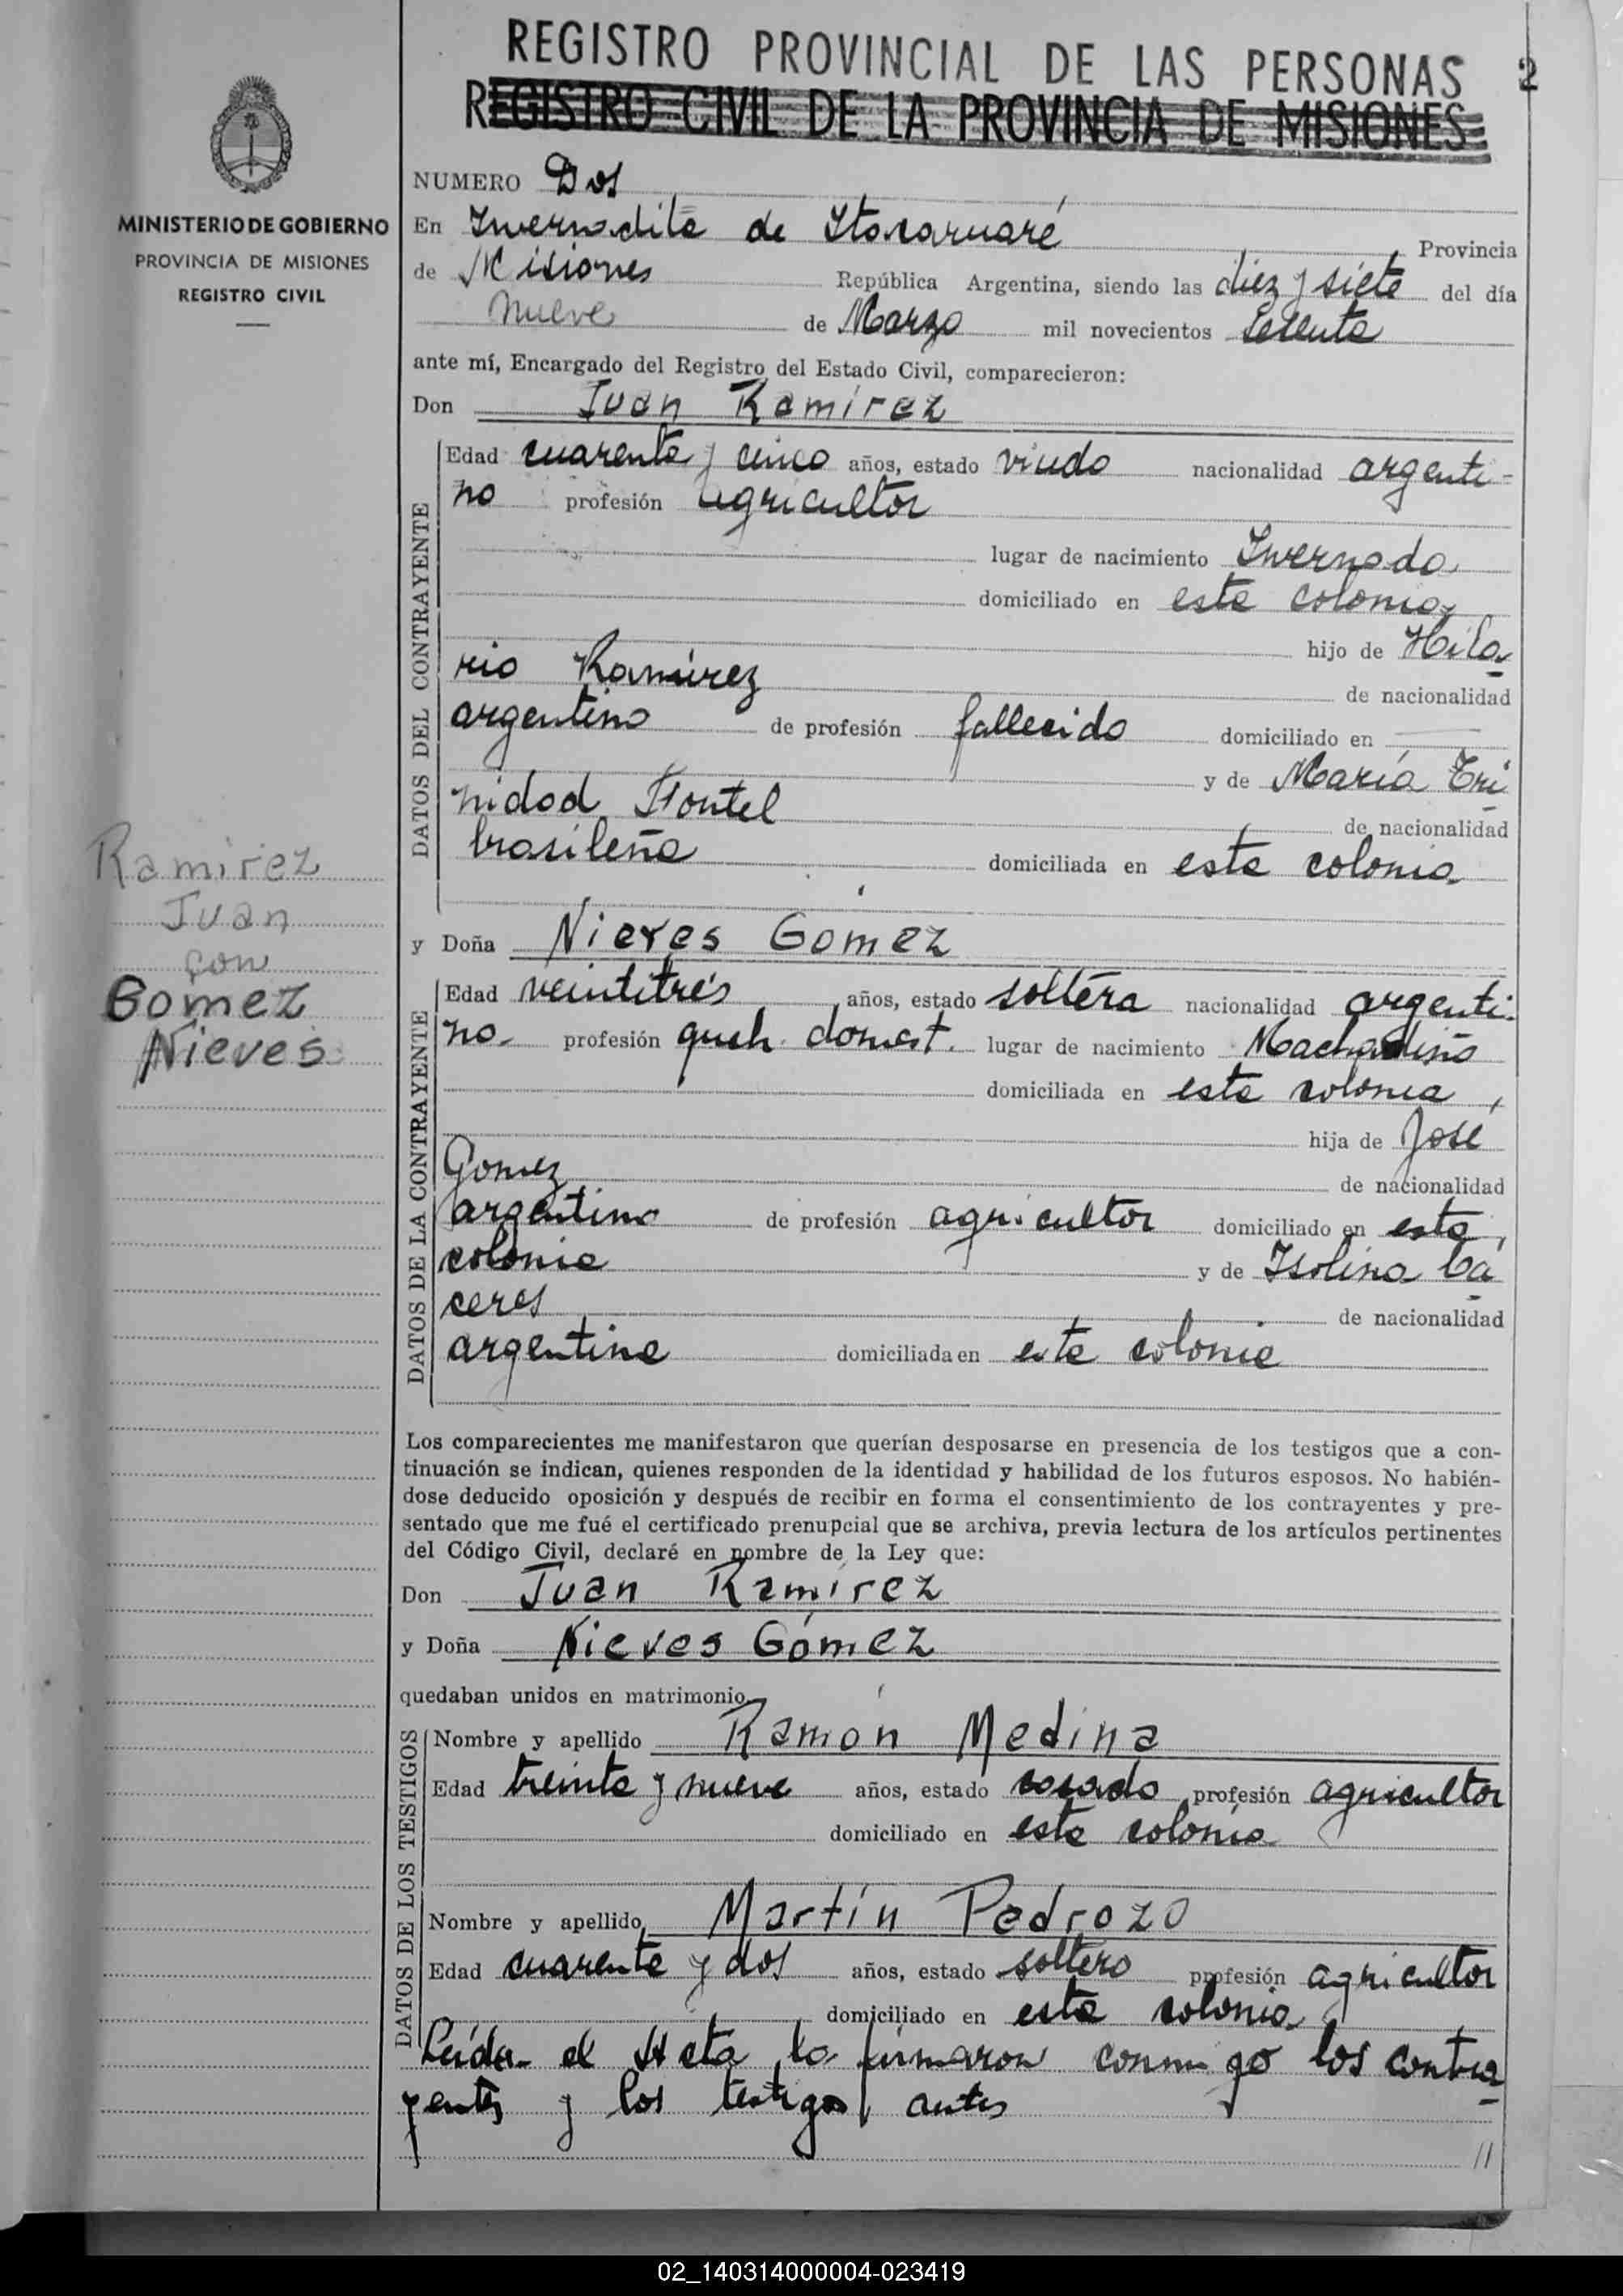 REGISTRO PROVINCIAL DE LAS PERSONAS 2
REGISTRO CIVIL DE LA PROVINCIA DE MISIONES
MINISTERIO DE GOBIERNO
PROVINCIA DE MISIONES
REGISTRO CIVIL
Ramirez
Juan
con
Gomez
Nieves
NUMERO Dos
En Invernadita de Itacaruaré Provincia
de Misiones República Argentina, siendo las diez y siete del día
nueve de Marzo mil novecientos setenta
ante mí, Encargado del Registro del Estado Civil, comparecieron:
Don Juan Ramírez
DATOS DEL CONTRAYENTE
Edad cuarenta y cinco años, estado viudo nacionalidad argenti-
no profesión agricultor
lugar de nacimiento Invernada
domiciliado en esta colonia,
hijo de Hila-
rio Ramírez de nacionalidad
argentino de profesión fallecido domiciliado en
y de María Tri-
nidad de nacionalidad
brasileña domiciliada en esta colonia
y Doña Nieves Gomez
DATOS DE LA CONTRAYENTE
Edad veintitrés años, estado soltera nacionalidad argenti-
na. profesión queh. domest. lugar de nacimiento Machadiño
domiciliada en esta colonia,
hija de José
Gomez de nacionalidad
argentino de profesión agricultor domiciliado en esta
colonia y de Isolina Cá-
ceres de nacionalidad
argentina domiciliada en esta colonia
Los comparecientes me manifestaron que querían desposarse en presencia de los testigos que a con-
tinuación se indican, quienes responden de la identidad y habilidad de los futuros esposos. No habién-
dose deducido oposición y después de recibir en forma el consentimiento de los contrayentes y pre-
sentado que me fué el certificado prenupcial que se archiva, previa lectura de los artículos pertinentes
del Código Civil, declaré en nombre de la Ley que:
Don Juan Ramírez
y Doña Nieves Gómez
quedaban unidos en matrimonio
DATOS DE LOS TESTIGOS
Nombre y apellido Ramón Medina
Edad treinta y nueve años, estado casado profesión agricultor
domiciliado en esta colonia
Nombre y apellido Martín Pedrozo
Edad cuarenta y dos años, estado soltero profesión agricultor
domiciliado en esta colonia
Leída el Acta la firmaron conmigo los contra-
yentes y los testigos antes
//
02_140314000004-023419